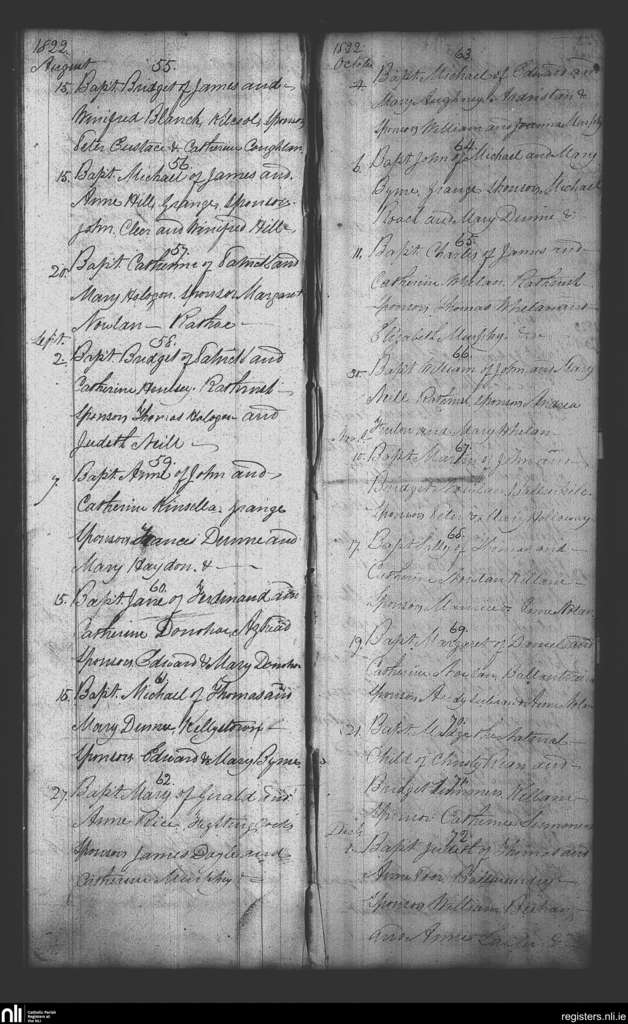 1822
August
55.
15. Bapt. Bridget of James and
Winifred Blanch, Kilcsol, Sponsors
Peter Eustace & Catherine Coughlan
56.
15. Bapt. Michael of James and
Anne Hill, Grange, Sponsors
John Cleer and Winifred Hill
57.
20. Bapt. Catherine of Patrick and
Mary Hologon. Sponsor Margaret
Nowlan — Rathoe —
Sept.
58.
2. Bapt Bridget of Patrick and
Catherine Rathmel —
Sponsors Thomas Hologon and
Judeth Neill —
59.
9. Bapt. Anne of John and
Catherine Kinsella. Grange
Sponsors Frances Dunne and
Mary Haydon. & —
60.
15. Bapt. Jane of Ferdinand and
Catherine Donohoe,
Sponsors, Edward & Mary Donohoe
61.
15. Bapt. Michael of Thomas and
Mary Dunne Kellystown —
Sponsors Edward & Mary Byrne
62.
27. Bapt Mary of Girald and
Anne Rice, Fighting Cocks
Sponsors James Doyle and
Catherine Murphy &
1822
October
63.
4. Bapt. Michael of Edward and
Mary &
Sponsors William and Joanna Murphy
64.
6. Bapt John of Michael and Mary
Byrne, Grange Sponsors Michael
Roach and Mary Dunne &
65.
11. Bapt. Charles of James and
Catherine Whelan Rathmel
Sponsors Thomas Whelan and
Elizabeth Murphy. &
66.
31. Bapt William of John and Mary
Neill Rathmel Sponsors
and Mary Whelan
Nov.
67.
10. Bapt. Martin of John and
Bridget Nowlan
Sponsors Peter & Holloway
68.
17. Bapt Sally of Thomas and —
Catherine Nowlan Killane —
Sponsors Maurice & Nolan
69.
19. Bapt. Margaret of Daniel and
Catherine Nowlan,
Sponsors & Anne Nolan
70.
21. Bapt. the Natural —
Child of Christy Ryan and —
Bridget Simmons, Killane —
Sponsor Catherine Simmons
Decr.
72.
1. Bapt Juliet of Thomas and
Anne —
Sponsors William
and Anne Lawler &
nli
Catholic Parish
Registers at
the NLI
registers.nli.ie